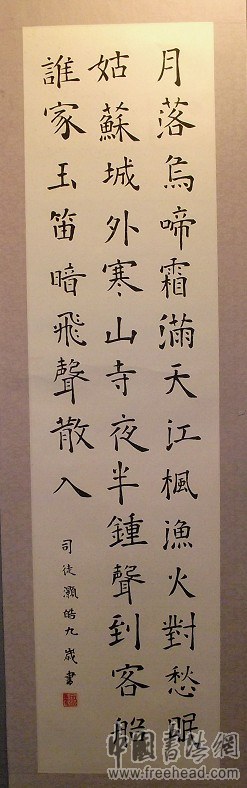 月落烏啼霜滿天江楓漁火對愁眠
姑蘇城外寒山寺夜半鍾聲到客船
誰家玉笛暗飛聲散入
司徒灝皓九歲書
中國書法網
www.freehead.com